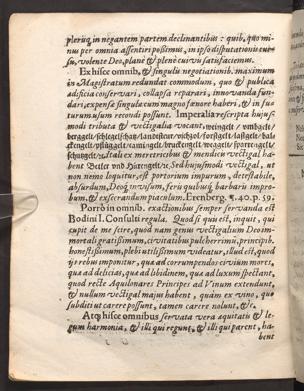 pleriq́ in negantem partem declinantibus: quib, quo mi-
nus per omnia assentiri possimus, in ipso disputationis cur-
su, volente Deo, plane & plene cuivis satisfaciemus.
Ex hisce omnib, & singulis negotiationib. maximum
in Magistratum redundat commodum, quo & publica
adificia conservari, collapsa reparari, innovanda fun-
dari, expensæ singulæ cum magno fœnore haberi, & in fu-
turum usum recondi possunt. Imperialia rescripta hujus-
modi tributa & vectigalia vocant,
berggelt/ schlegelschatz/
Alta ex meretricibus & mendicis vectigal, ha-
bent Betler und Hurengelt/ Sed hujusmodi vectigal, ut
non nemo loquitur, est portorium impurum, detestabile,
absurdum, Deoq́ invisum, feris quibusq́ barbaris impro-
bum, & exsecrandum piaculum. Erenberg. V. 40. p. 59.
Porrò in omnib. exactionibus semper servanda est
Bodini I. Consulti regula. Quod si quis est, inquit, qui
cupit de me scire, quod nam genus vectigalium Deo im-
mortali gratissimum, civitatibus pulcherrimū, principib.
honestissimum, plebi utilissimum videatur, illud est, quod
iis rebus imponitur, qua ad corrumpendos civium mores,
qua ad delicias, qua ad libidinem, qua ad luxum spectant,
quod recte Aquilonares Principes ad Vinum extendunt,
& nullum vectigal majus habent, quàm ex vino, quo
subditi ut carere possunt, tamen carere nolunt, &c.
Atq́ hisce omnibus servata vera æquitatis & le-
gum harmonia, & illi qui regunt, & illi qui parent, ha-
bent